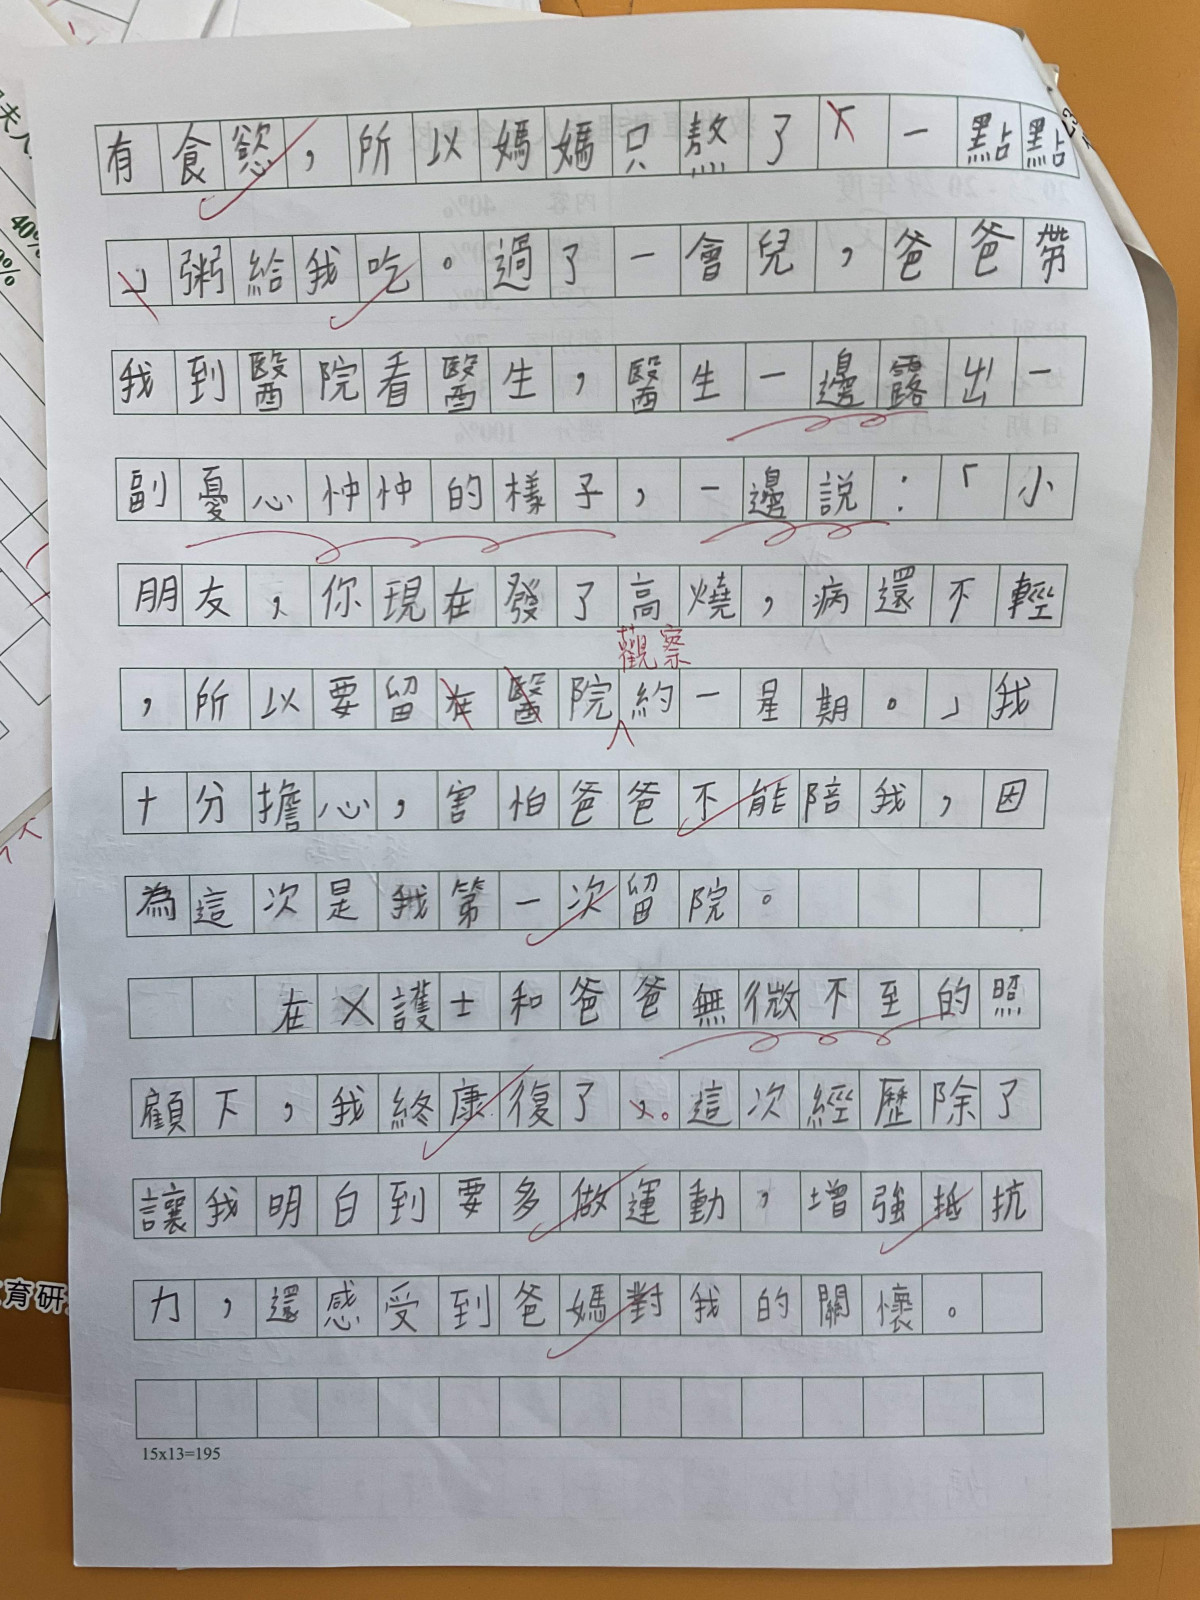 有食慾，所以媽媽只熬了「一點點
」粥給我吃。過了一會兒，爸爸帶
我到醫院看醫生，醫生一邊露出一
副憂心忡忡的樣子，一邊說：「小
朋友，你現在發了高燒，病還不輕
觀察
，所以要留在醫院約一星期。」我
十分擔心，害怕爸爸不能陪我，因
為這次是我第一次留院。
在X護士和爸爸無微不至的照
顧下，我終康復了，。這次經歷除了
讓我明白到要多做運動，增強抵抗
力，還感受到爸媽對我的關懷。
15x13=195
40%
育研